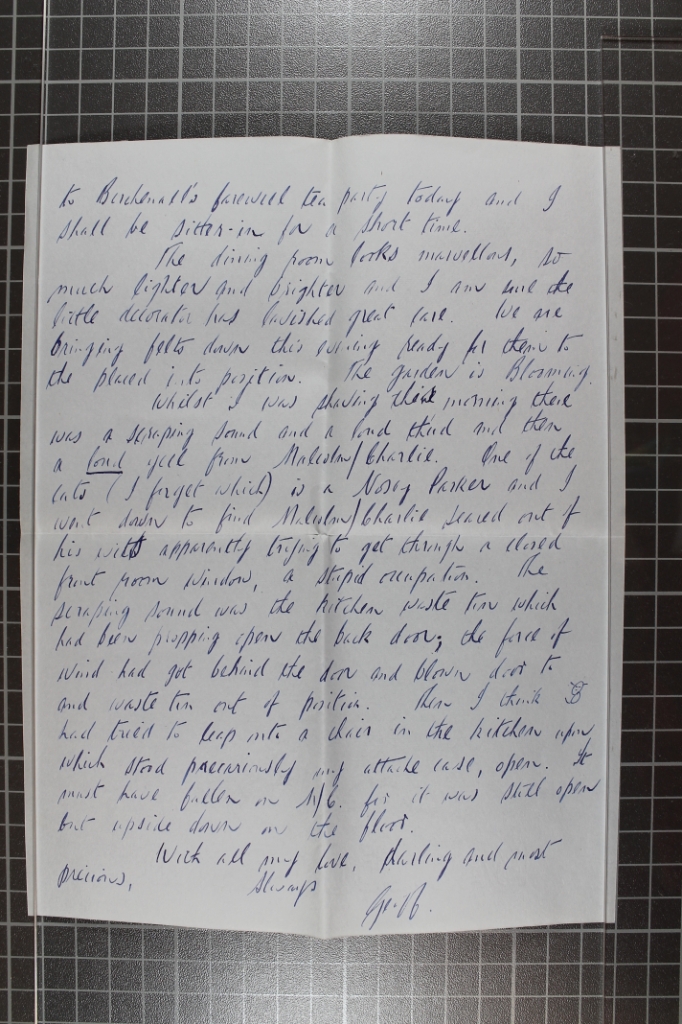 to Birchenall's farewell tea party today and I
shall be sitter-in for a short time.
The dining room looks marvellous, so
much lighter and brighter and I am sure the
little decorator has lavished great care. We are
bringing felts down this evening ready for them to
the placed into position. The garden is Blooming.
Whilst I was shaving this morning there
was a scraping sound and a loud thud and then
a loud yell from Malcolm/Charlie. One of the
cats (I forget which) is a Nosey Parker and I
went down to find Malcolm/Charlie scared out of
his wits apparently trying to get through a closed
front room window, a stupid occupation. The
scraping sound was the kitchen waste tin which
had been propping open the back door; the force of
wind had got behind the door and blown door to
and waste tin out of position. Then I think
had tried to leap onto a chair in the kitchen upon
which stood precariously my attache case, open. It
must have fallen on M/C. for it was still open
but upside down on the floor.
With all my love, darling and most
precious,
Always
Geoff.